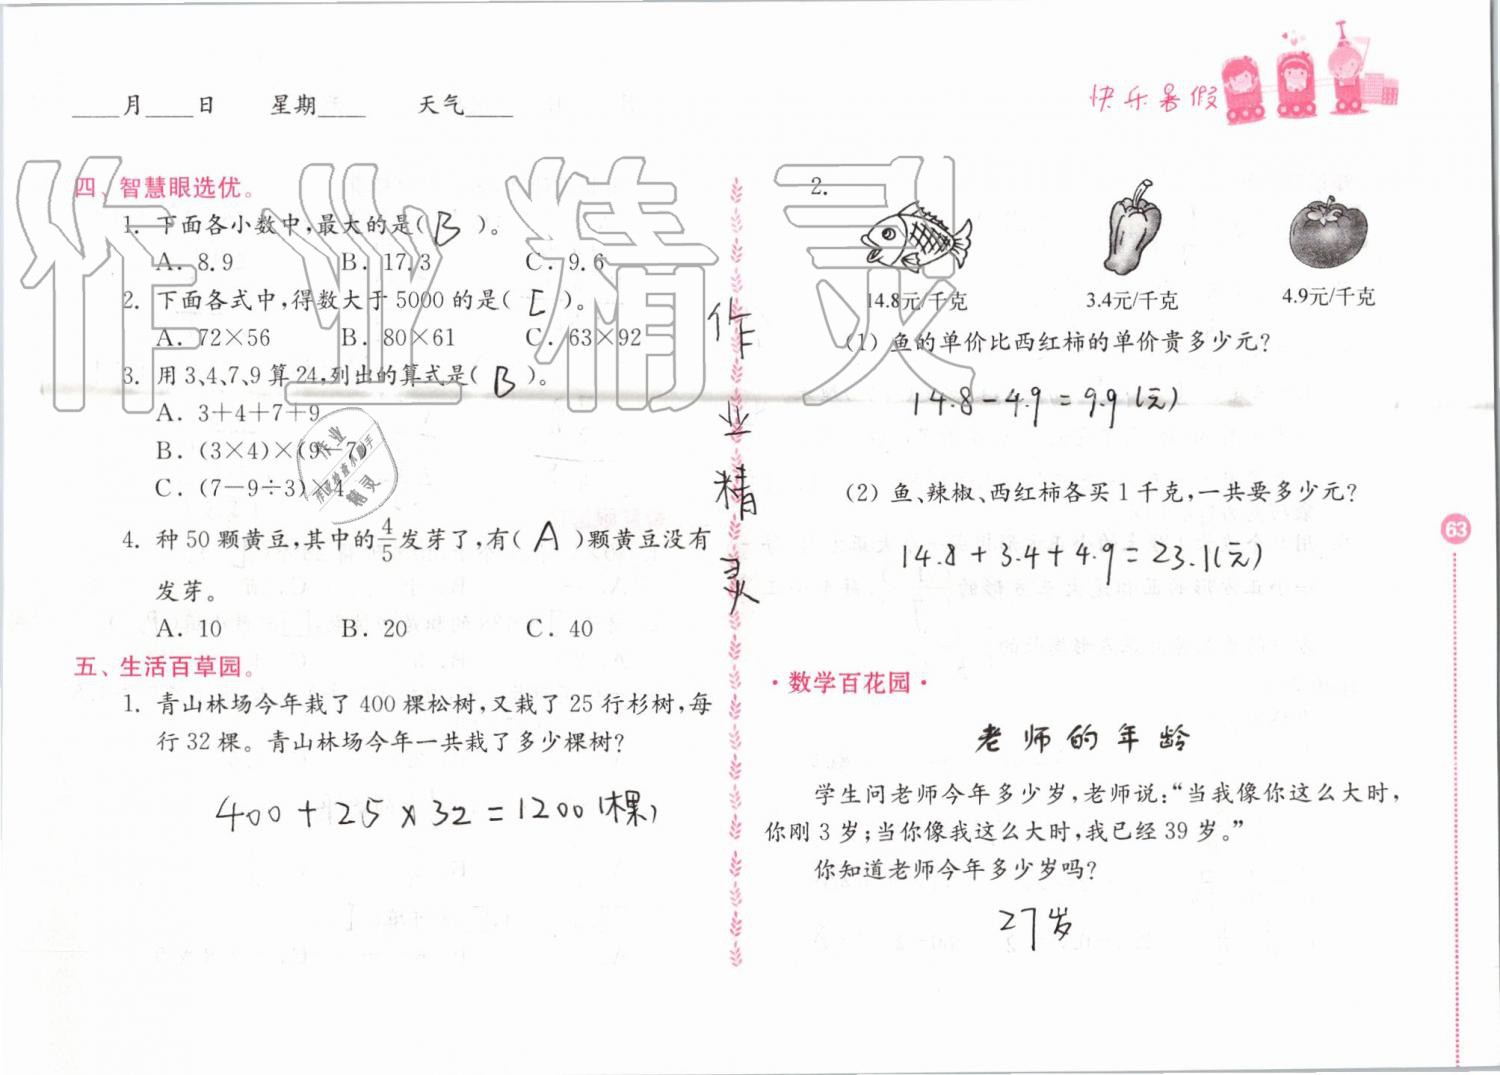 ____月____日 星期____ 天气____
快乐暑假
四、智慧眼选优。
1. 下面各小数中,最大的是( B )。
A. 8.9 B. 17.3 C. 9.6
2. 下面各式中,得数大于5000的是( C )。
A. 72×56 B. 80×61 C. 63×92
3. 用3、4、7、9算24,列出的算式是( B )。
A. 3+4+7+9
B. (3×4)×(9-7)
C. (7-9÷3)×4
4. 种50颗黄豆,其中的4/5发芽了,有( A )颗黄豆没有
发芽。
A. 10 B. 20 C. 40
五、生活百草园。
1. 青山林场今年栽了400棵松树,又栽了25行杉树,每
行32棵。青山林场今年一共栽了多少棵树?
400+25×32=1200(棵)
作业精灵
作业精灵
作业
精灵
2.
14.8元/千克 3.4元/千克 4.9元/千克
(1) 鱼的单价比西红柿的单价贵多少元?
14.8-4.9=9.9(元)
(2) 鱼、辣椒、西红柿各买1千克,一共要多少元?
14.8+3.4+4.9=23.1(元)
·数学百花园·
老师的年龄
学生问老师今年多少岁,老师说:“当我像你这么大时,
你刚3岁;当你像我这么大时,我已经39岁。”
你知道老师今年多少岁吗?
27岁
63